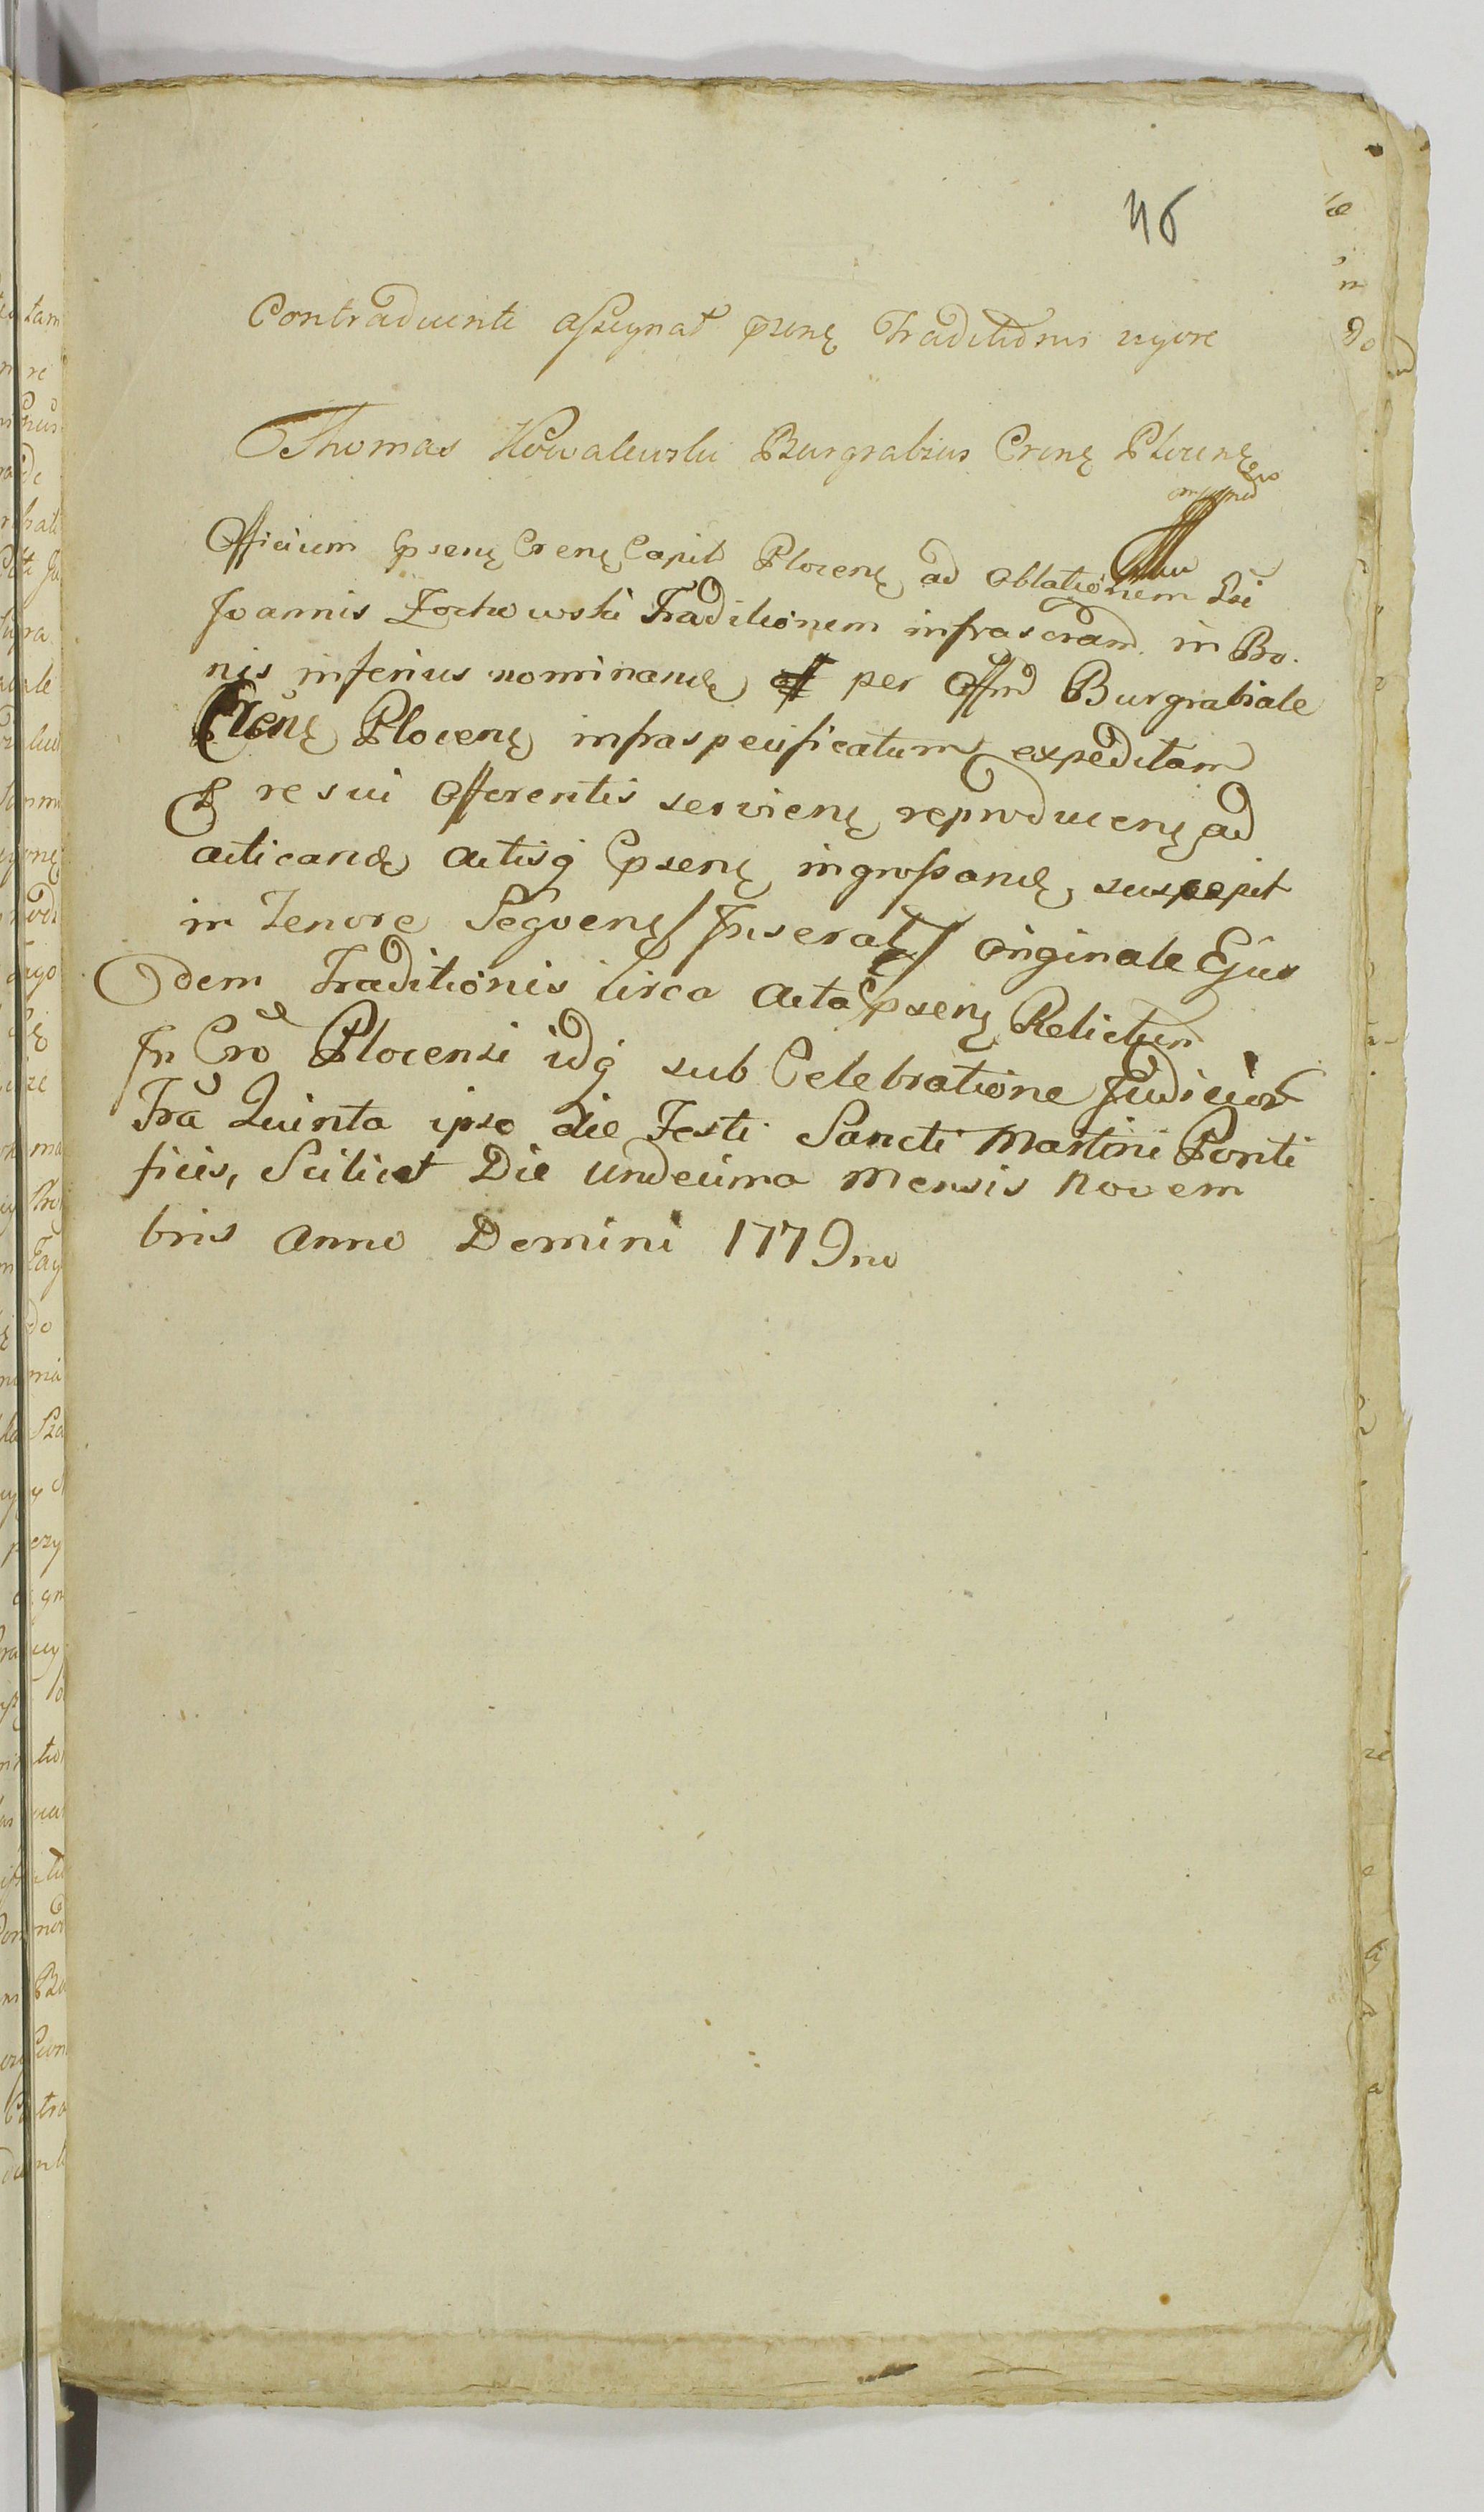 46
Contraducenti assignat psenę Traditionis vigore
Thomas Kowalewski Burgrabius Crenę Plocenę
Officium Psenę Crenę Capit Plocenę ad Oblationem
Joannis Żochowski Traditionem infrascram in Bo.
nis inferius nominandę per Offm Burgrabiale
Crenę Plocenę infraspecificatum expeditam
& re sui Offerentis servienę reproducenę ad
acticandę Actisq Psenę ingrossandę suscepit
in Tenore Seqvenę /Inserat/ Originale Ejus
dem Traditionis circa Acta Psenę Relictum
In Cro Plocensi idq sub Celebratione Judicior
Fra Quinta ipso die Festi Sancti Martini Ponti
ficis, Scilicet Die Undecima Mensis Novem
bris Anno Domini 1779no